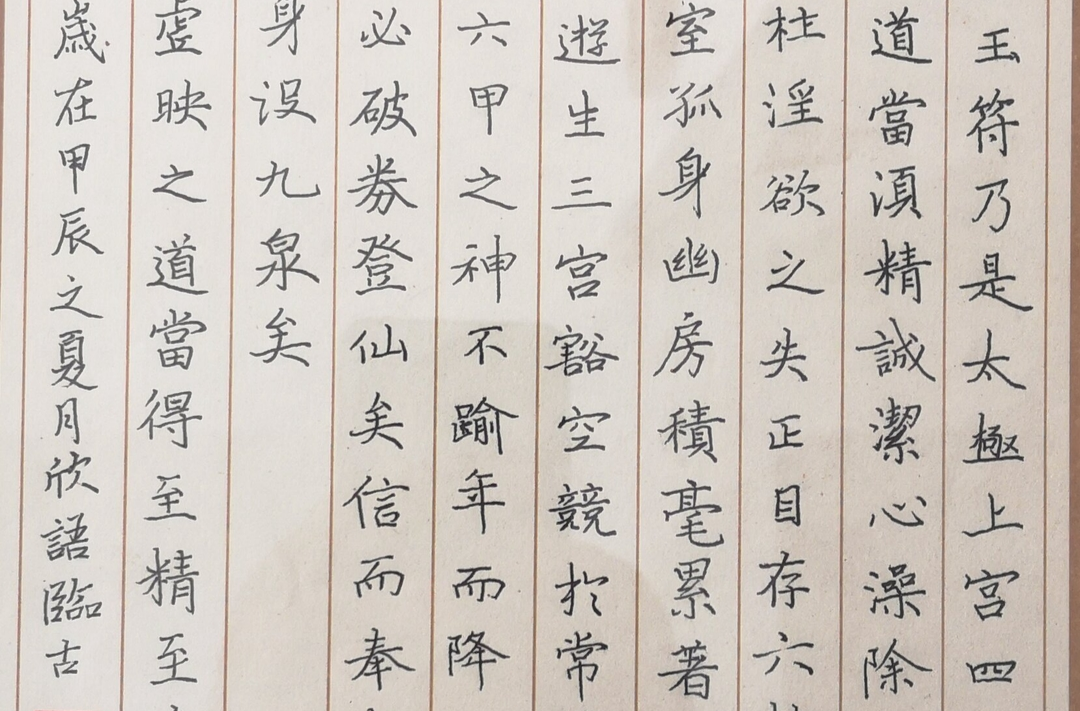 玉符乃是太極上宫四
道當湏精誠潔心澡除
柱淫欲之失正目存六
室孤身幽房積毫累著
遊生三宫豁空競於常
六甲之神不踰年而降
必破券登仙矣信而奉
身没九泉矣
虚映之道當得至精至
歲在甲辰之夏月欣語臨古